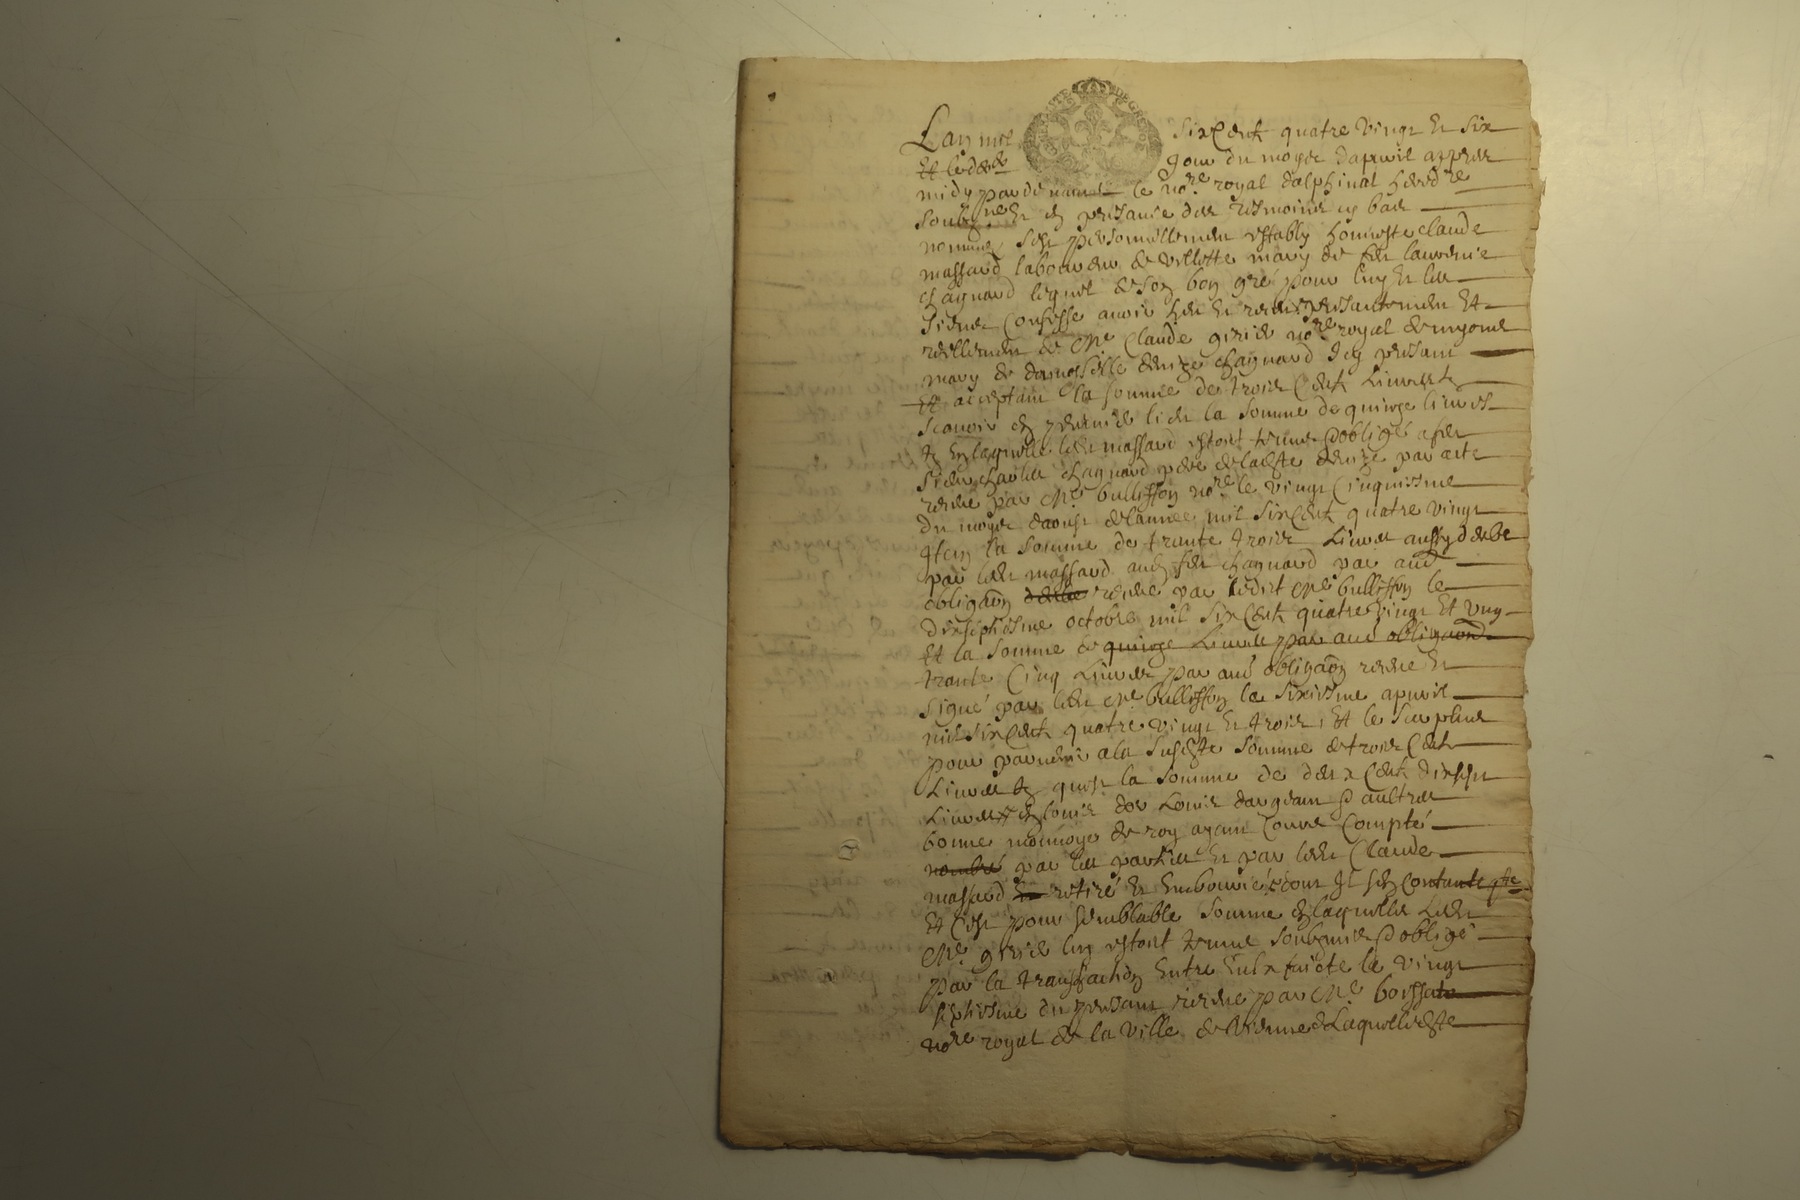 Lan mil sixCentz quatre vingt Et six
Et le jour du moys dapvril appres
midy par devant le no.re royal dalphinal hered.re
soubz.ne Et en presance des tesmoins cy bas
nommes sest personnellement estably honneste claude
massard laboureur de villette mary de fue laurence
chagnard lequel de son bon gré pour luy Et les
siens Confesse avoir heu Et receu presantement Et
reellement de M.e Claude girie no.re royal de
mary de damoiselle denize chagnard Icy presant
Et acceptant la somme de trois Centz Livres
scavoir en premie lieu la somme de quinze livres
En laquelle led massard estoit tenu & obligé a feu
sieur charles chagnard pere de ladite denize par acte
receu par M.e bullisson no.re le vingt Cinquiesme
du moys daoust de lannee mil sixCentz quatre vingt
Item la somme de trante trois Livres aussy deube
par led massard aud feu chagnard par aud
obligaon deube receue par ledit M.e bullisson le
dixseptiesme octobre mil sixCentz quatre vingt Et ung
Et la somme de quinze Livres par aud obligaond
trante Cinq Livres par aud obligaon receue Et
signé par led M.e bullisson le sixiesme apvril
mil sixCentz quatre vingt Et trois, Et le surplus
pour parvenir a la susdite somme de trois Centz
Livres quest la somme de deux Centz dixsept
Livres en louis dor Louis dargeant & aultres
bonne monnoye de roy ayant Cours Compté
nombré par les parties Et par led Claude
massard Et retiré Et Emboursé dont Il sen contante q.te
Et Cest pour semblable somme En laquelle led
M.e girie luy estoit tenu soubzmis & obligé
par la transaction Entre Eulx faicte le vingt
septiesme du presant receue par M.e boissat
no.re royal de la ville de Vienne & Laquelle dite